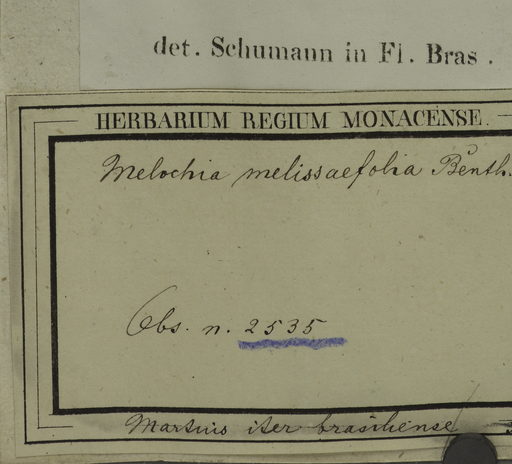 det. Schumann in Fl. Bras.
HERBARIUM REGIUM MONACENSE.
Melochia melissaefolia Benth.
Obs. n. 2535
Martius iter brasiliense